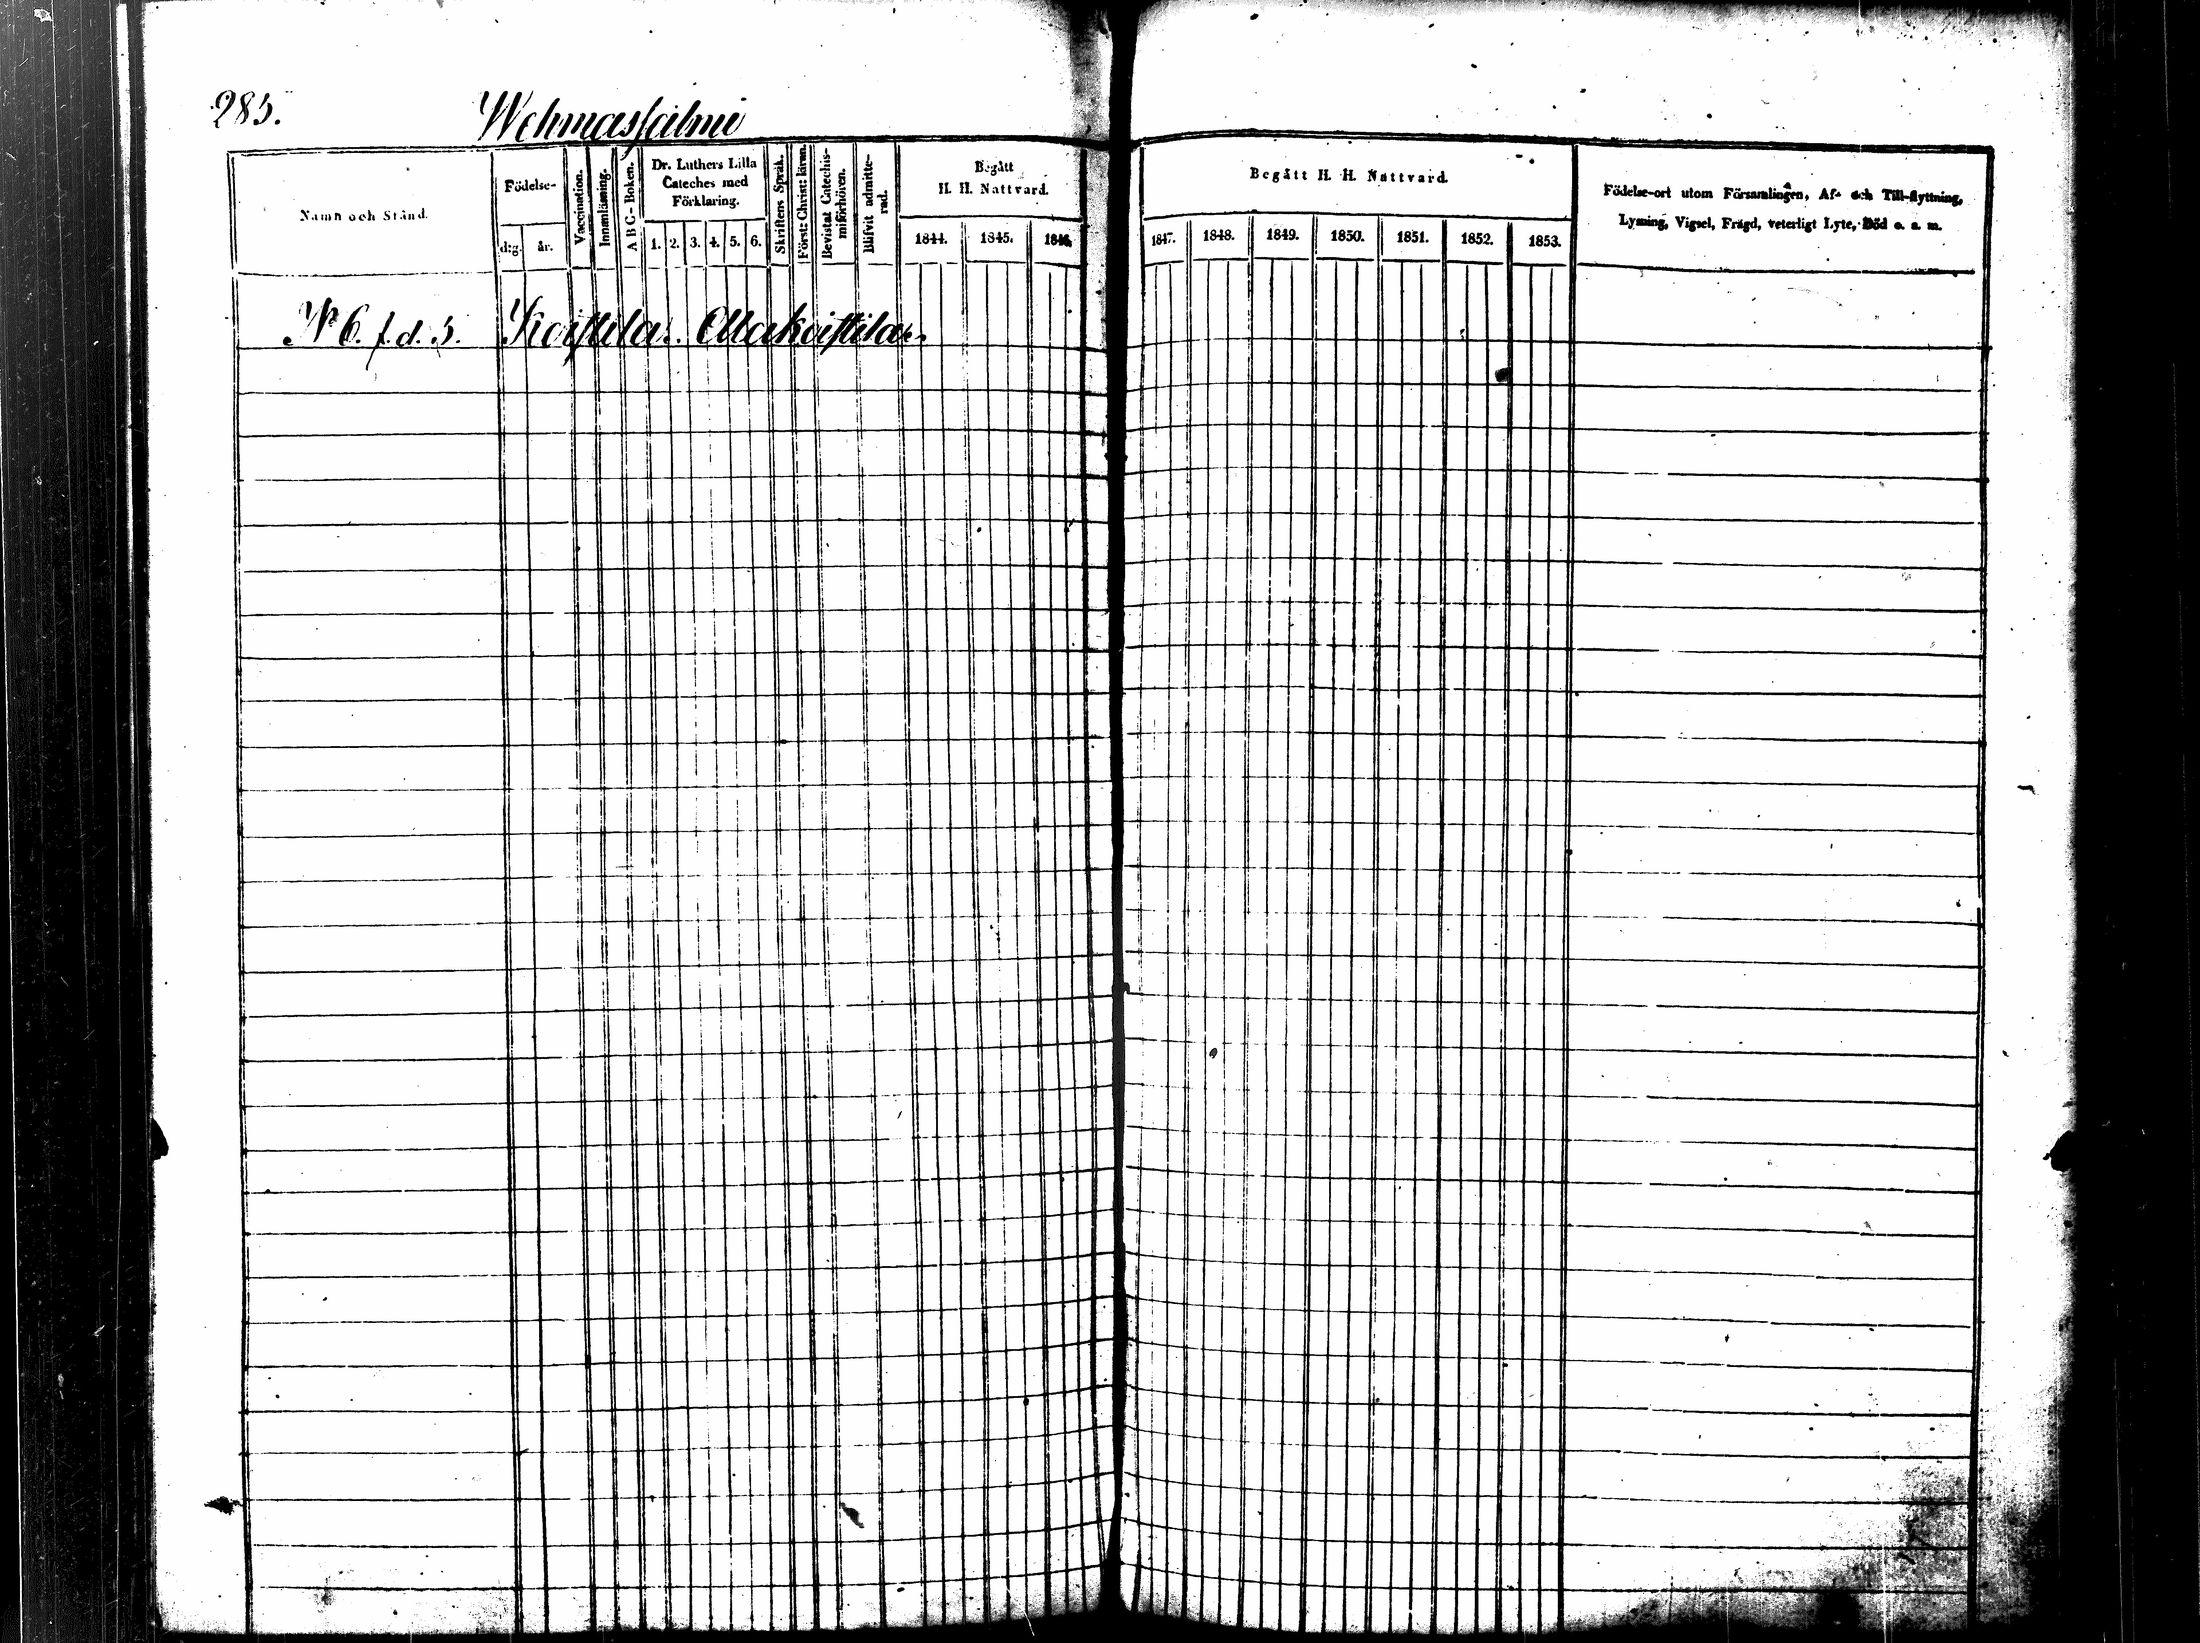 285.
Wehmassalmi
Namn och Stånd.
Födelse-
dag.
år.
Vaccination.
Innanläsning.
A B C-Boken.
Dr. Luthers Lilla
Cateches med
Förklaring.
1. 2. 3. 4. 5. 6.
Skriftens Språk.
Först: Christ: läran.
Bevistat Catechis-
miförhören.
Blifvit admitte-
rad.
Begått
H. H. Nattvard.
1844. 1845. 1846.
Begått H. H. Nattvard.
1847. 1848. 1849. 1850. 1851. 1852. 1853.
Födelse-ort utom Församlingen, Af- och Till-flyttning,
Lysning, Vigsel, Frägd, veterligt Lyte, Död o. s. m.
N 6. f. d. 5. Koistila.